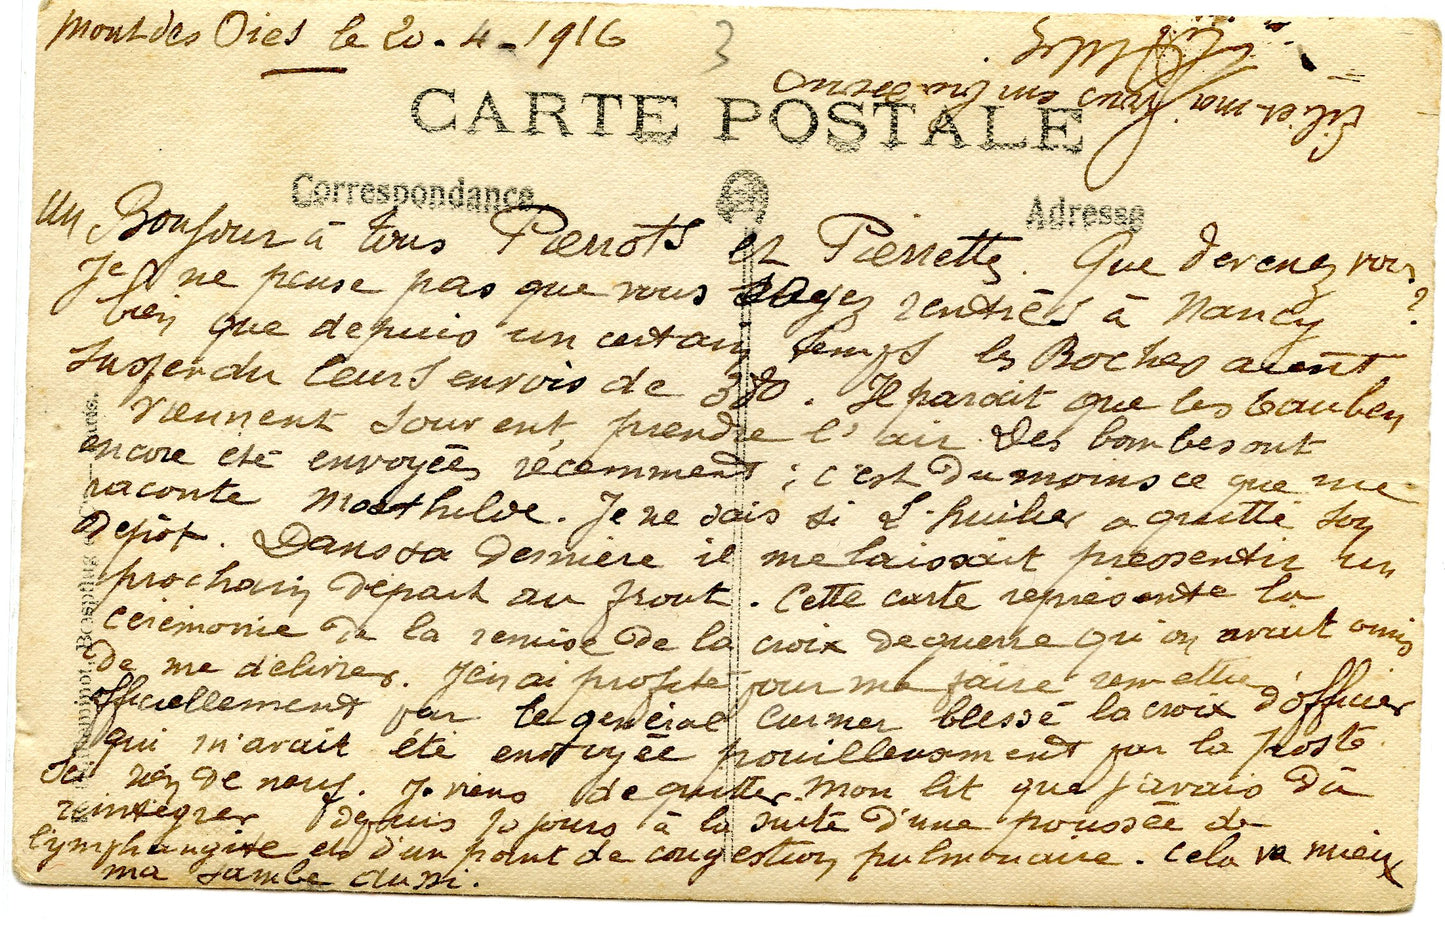 Mont des Oies le 20-4-1916
3
CARTE POSTALE
Correspondance
Adresse
Un Bonjour à tous Pierrots et Pierrette. Que devenez vous?
Je ne pense pas que vous soyez rentrés à Nancy
bien que depuis un certain temps les Boches aient
suspendu leurs envois de 380. Il parait que les tauben
viennent souvent prendre l'air. Des bombes ont
encore été envoyées récemment ; c'est du moins ce que me
raconte Mathilde. Je ne sais si L'huilier a quitté son
dépôt. Dans sa dernière il me laissait pressentir un
prochain départ au front. Cette carte représente la
cérémonie de la remise de la croix de guerre qu'on avait omis
de me délivrer. J'en ai profité pour me faire remettre
officiellement par le général Curmer blessé la croix d'officier
qui m'avait été envoyée pouilleusement par la poste.
Ici rien de neuf. Je viens de quitter mon lit que j'avais dû
réintégrer depuis 10 jours à la suite d'une poussée de
lymphangite et d'un point de congestion pulmonaire. Cela va mieux
ma jambe aussi.
Lili et moi vous embrassons